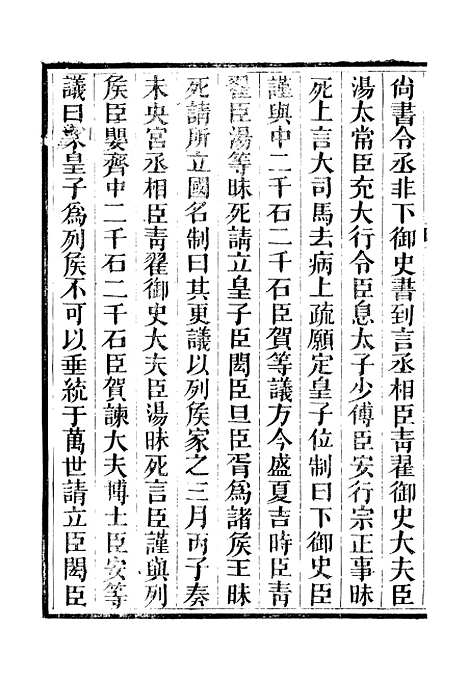 尚書令丞非下御史書到言丞相臣青翟御史大夫臣
湯太常臣充大行令臣息太子少傅臣安行宗正事昧
死上言大司馬去病上疏願定皇子位制曰下御史臣
謹與中二千石二千石臣賀等議方今盛夏吉時臣青
翟臣湯等昧死請立皇子臣閎臣旦臣胥為諸侯王昧
死請所立國名制曰其更議以列侯家之三月丙子奏
未央宮丞相臣青翟御史大夫臣湯昧死言臣謹與列
侯臣嬰齊中二千石二千石臣賀諫大夫博士臣安等
議曰 皇子為列侯不可以垂統于萬世請立臣閎臣